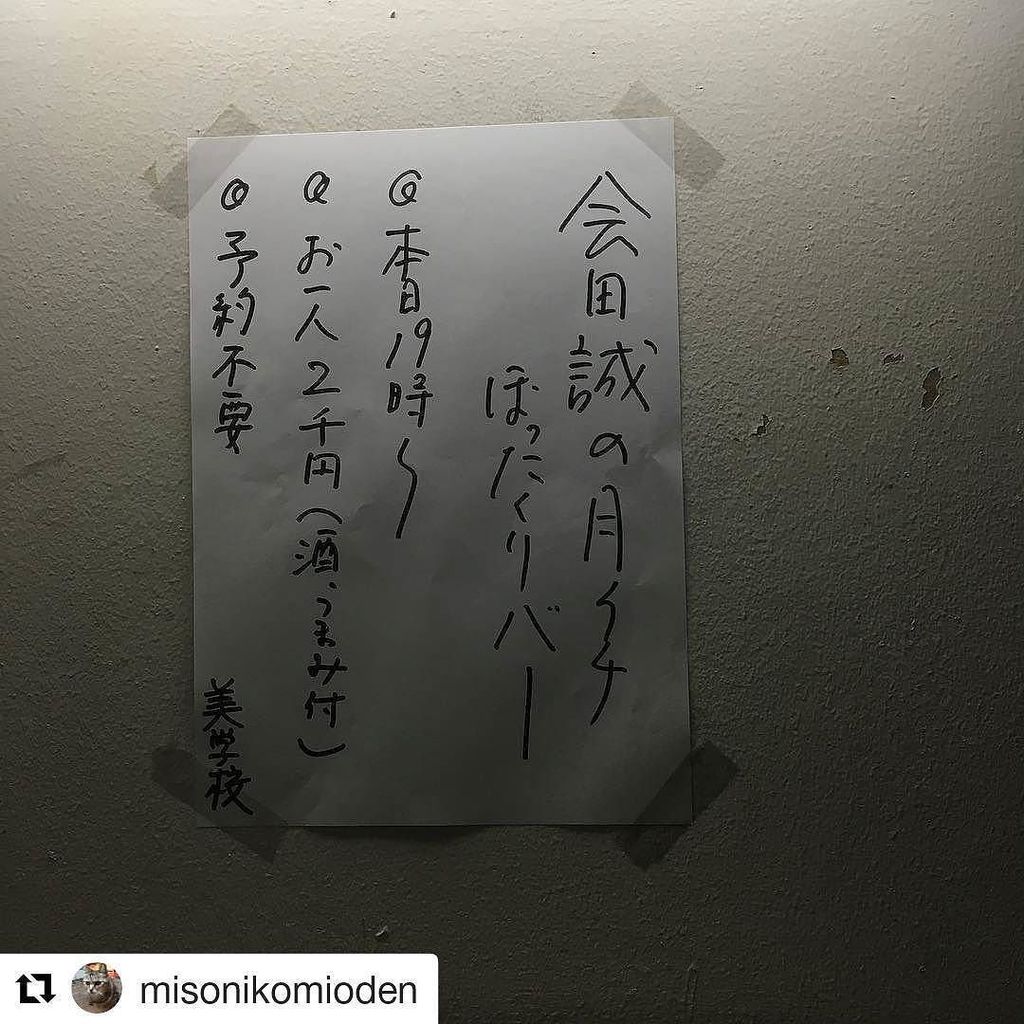 会田誠の月イチ
ぼったくりバー
◎本日19時〜
◎お一人2千円(酒、つまみ付)
◎予約不要
美学校
misonikomioden